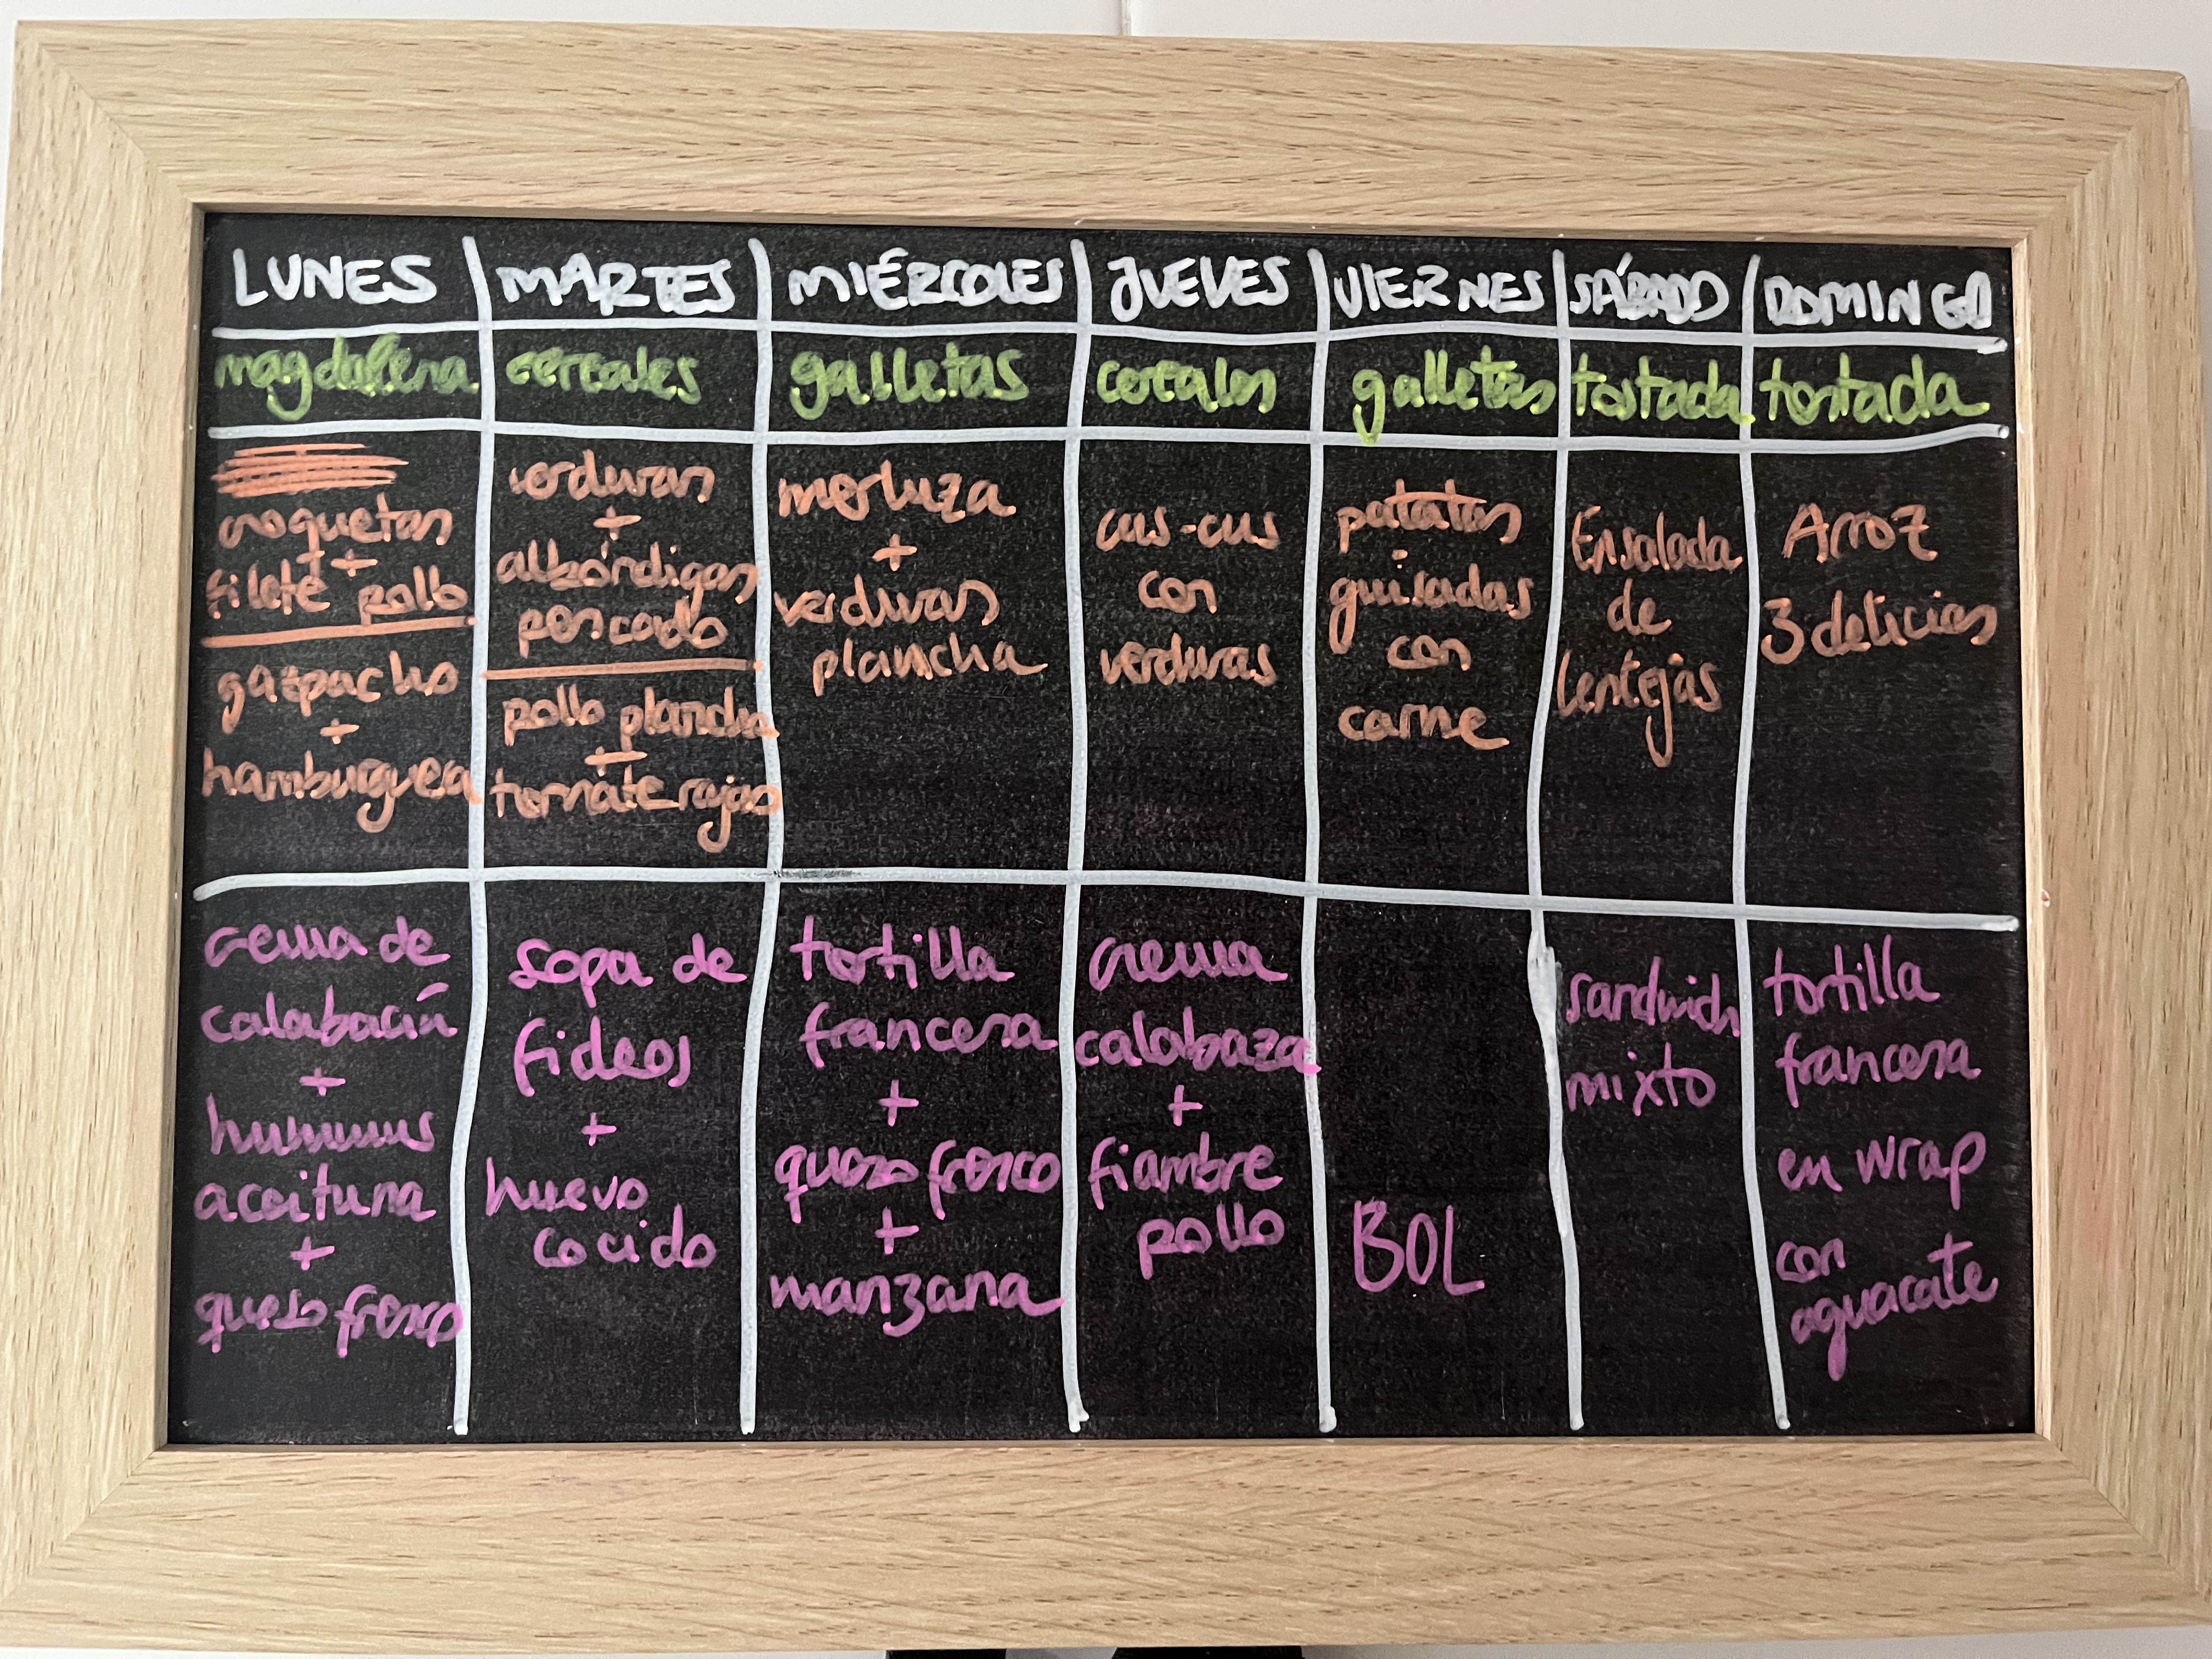 LUNES
MARTES
MIÉRCOLES
JUEVES
VIERNES
SÁBADO
DOMINGO
magdalena
cereales
galletas
cereales
galletas
tostada
tostada
croquetas
+
filete pollo
gazpacho
+
hamburguesa
verduras
+
albóndigas
pescado
pollo plancha
+
tomate rajas
merluza
+
verduras
plancha
cus-cus
con
verduras
patatas
guisadas
con
carne
Ensalada
de
lentejas
Arroz
3 delicias
crema de
calabacín
+
hummus
aceituna
+
queso fresco
sopa de
fideos
+
huevo
cocido
tortilla
francesa
+
queso fresco
+
manzana
crema
calabaza
+
fiambre
pollo
BOL
sandwich
mixto
tortilla
francesa
en wrap
con
aguacate